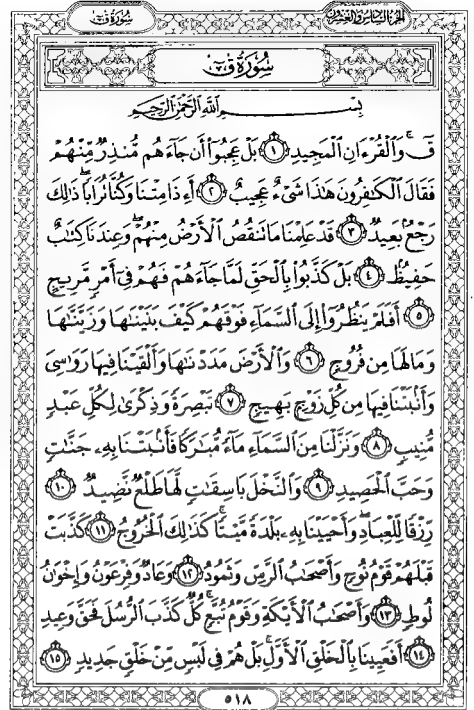 سُورَةُ ق
الجُزْءُ السَّادِسُ وَالعِشْرُونَ
سُورَةُ ق
بِسْمِ ٱللَّهِ ٱلرَّحْمَٰنِ ٱلرَّحِيمِ
قٓۚ وَٱلْقُرْءَانِ ٱلْمَجِيدِ ١ بَلْ عَجِبُوٓا۟ أَن جَآءَهُم مُّنذِرٌ مِّنْهُمْ
فَقَالَ ٱلْكَٰفِرُونَ هَٰذَا شَىْءٌ عَجِيبٌ ٢ أَءِذَا مِتْنَا وَكُنَّا تُرَابًاۖ ذَٰلِكَ
رَجْعٌۢ بَعِيدٌ ٣ قَدْ عَلِمْنَا مَا تَنقُصُ ٱلْأَرْضُ مِنْهُمْۖ وَعِندَنَا كِتَٰبٌ
حَفِيظٌۢ ٤ بَلْ كَذَّبُوا۟ بِٱلْحَقِّ لَمَّا جَآءَهُمْ فَهُمْ فِىٓ أَمْرٍ مَّرِيجٍ
٥ أَفَلَمْ يَنظُرُوٓا۟ إِلَى ٱلسَّمَآءِ فَوْقَهُمْ كَيْفَ بَنَيْنَٰهَا وَزَيَّنَّٰهَا
وَمَا لَهَا مِن فُرُوجٍ ٦ وَٱلْأَرْضَ مَدَدْنَٰهَا وَأَلْقَيْنَا فِيهَا رَوَٰسِىَ
وَأَنۢبَتْنَا فِيهَا مِن كُلِّ زَوْجٍۭ بَهِيجٍ ٧ تَبْصِرَةً وَذِكْرَىٰ لِكُلِّ عَبْدٍ
مُّنِيبٍ ٨ وَنَزَّلْنَا مِنَ ٱلسَّمَآءِ مَآءً مُّبَٰرَكًا فَأَنۢبَتْنَا بِهِۦ جَنَّٰتٍ
وَحَبَّ ٱلْحَصِيدِ ٩ وَٱلنَّخْلَ بَاسِقَٰتٍ لَّهَا طَلْعٌ نَّضِيدٌ ١٠
رِّزْقًا لِّلْعِبَادِۖ وَأَحْيَيْنَا بِهِۦ بَلْدَةً مَّيْتًاۚ كَذَٰلِكَ ٱلْخُرُوجُ ١١ كَذَّبَتْ
قَبْلَهُمْ قَوْمُ نُوحٍ وَأَصْحَٰبُ ٱلرَّسِّ وَثَمُودُ ١٢ وَعَادٌ وَفِرْعَوْنُ وَإِخْوَٰنُ
لُوطٍ ١٣ وَأَصْحَٰبُ ٱلْأَيْكَةِ وَقَوْمُ تُبَّعٍۚ كُلٌّ كَذَّبَ ٱلرُّسُلَ فَحَقَّ وَعِيدِ
١٤ أَفَعَيِينَا بِٱلْخَلْقِ ٱلْأَوَّلِۚ بَلْ هُمْ فِى لَبْسٍ مِّنْ خَلْقٍ جَدِيدٍ ١٥
٥١٨